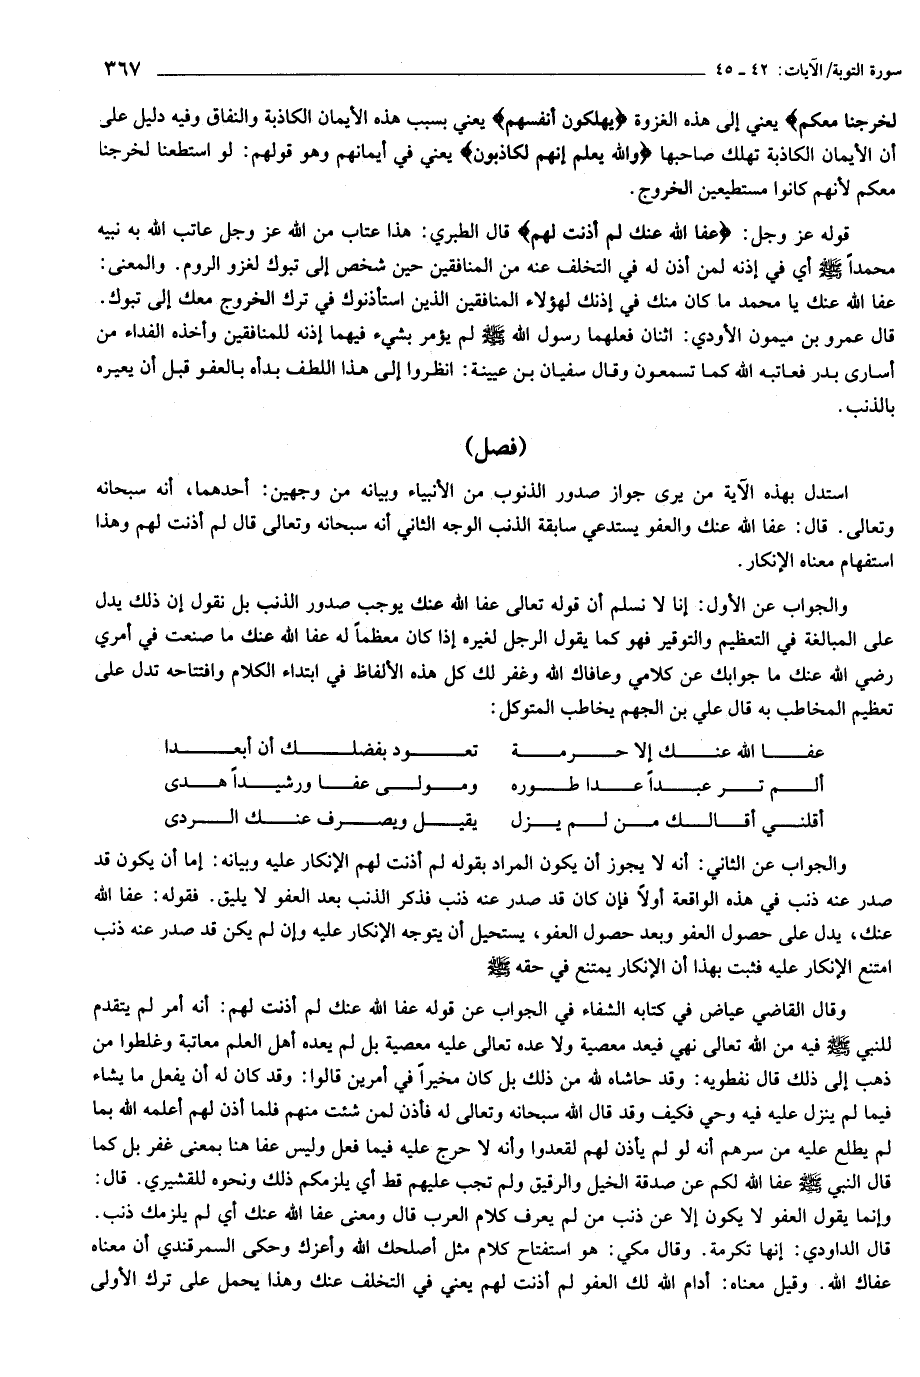 سورة التوبة/ الآيات: ٤٢ ـ ٤٥ ٣٦٧
لخرجنا معكم﴾ يعني إلى هذه الغزوة ﴿يهلكون أنفسهم﴾ يعني بسبب هذه الأيمان الكاذبة والنفاق وفيه دليل على
أن الأيمان الكاذبة تهلك صاحبها ﴿والله يعلم إنهم لكاذبون﴾ يعني في أيمانهم وهو قولهم: لو استطعنا لخرجنا
معكم لأنهم كانوا مستطيعين الخروج.
قوله عز وجل: ﴿عفا الله عنك لم أذنت لهم﴾ قال الطبري: هذا عتاب من الله عز وجل عاتب الله به نبيه
محمداً ﷺ أي في إذنه لمن أذن له في التخلف عنه من المنافقين حين شخص إلى تبوك لغزو الروم. والمعنى:
عفا الله عنك يا محمد ما كان منك في إذنك لهؤلاء المنافقين الذين استأذنوك في ترك الخروج معك إلى تبوك.
قال عمرو بن ميمون الأودي: اثنان فعلهما رسول الله ﷺ لم يؤمر بشيء فيهما إذنه للمنافقين وأخذه الفداء من
أسارى بدر فعاتبه الله كما تسمعون وقال سفيان بن عيينة: انظروا إلى هذا اللطف بدأه بالعفو قبل أن يعيره
بالذنب.
(فصل)
استدل بهذه الآية من يرى جواز صدور الذنوب من الأنبياء وبيانه من وجهين: أحدهما، أنه سبحانه
وتعالى. قال: عفا الله عنك والعفو يستدعي سابقة الذنب الوجه الثاني أنه سبحانه وتعالى قال لم أذنت لهم وهذا
استفهام معناه الإنكار.
والجواب عن الأول: إنا لا نسلم أن قوله تعالى عفا الله عنك يوجب صدور الذنب بل نقول إن ذلك يدل
على المبالغة في التعظيم والتوقير فهو كما يقول الرجل لغيره إذا كان معظماً له عفا الله عنك ما صنعت في أمري
رضي الله عنك ما جوابك عن كلامي وعافاك الله وغفر لك كل هذه الألفاظ في ابتداء الكلام وافتتاحه تدل على
تعظيم المخاطب به قال علي بن الجهم يخاطب المتوكل:
عفا الله عنك إلا حرمة تعود بفضلك أن أبعدا
ألم تر عبداً عدا طوره ومولى عفا ورشيداً هدى
أقلني أقالك من لم يزل يقيل ويصرف عنك الردى
والجواب عن الثاني: أنه لا يجوز أن يكون المراد بقوله لم أذنت لهم الإنكار عليه وبيانه: إما أن يكون قد
صدر عنه ذنب في هذه الواقعة أولاً فإن كان قد صدر عنه ذنب فذكر الذنب بعد العفو لا يليق. فقوله: عفا الله
عنك، يدل على حصول العفو وبعد حصول العفو، يستحيل أن يتوجه الإنكار عليه وإن لم يكن قد صدر عنه ذنب
امتنع الإنكار عليه فثبت بهذا أن الإنكار يمتنع في حقه ﷺ
وقال القاضي عياض في كتابه الشفاء في الجواب عن قوله عفا الله عنك لم أذنت لهم: أنه أمر لم يتقدم
للنبي ﷺ فيه من الله تعالى نهي فيعد معصية ولا عده تعالى عليه معصية بل لم يعده أهل العلم معاتبة وغلطوا من
ذهب إلى ذلك قال نفطويه: وقد حاشاه لله من ذلك بل كان مخيراً في أمرين قالوا: وقد كان له أن يفعل ما يشاء
فيما لم ينزل عليه فيه وحي فكيف وقد قال الله سبحانه وتعالى له فأذن لمن شئت منهم فلما أذن لهم أعلمه الله بما
لم يطلع عليه من سرهم أنه لو لم يأذن لهم لقعدوا وأنه لا حرج عليه فيما فعل وليس عفا هنا بمعنى غفر بل كما
قال النبي ﷺ عفا الله لكم عن صدقة الخيل والرقيق ولم تجب عليهم قط أي يلزمكم ذلك ونحوه للقشيري. قال:
وإنما يقول العفو لا يكون إلا عن ذنب من لم يعرف كلام العرب قال ومعنى عفا الله عنك أي لم يلزمك ذنب.
قال الداودي: إنها تكرمة. وقال مكي: هو استفتاح كلام مثل أصلحك الله وأعزك وحكى السمرقندي أن معناه
عفاك الله. وقيل معناه: أدام الله لك العفو لم أذنت لهم يعني في التخلف عنك وهذا يحمل على ترك الأولى